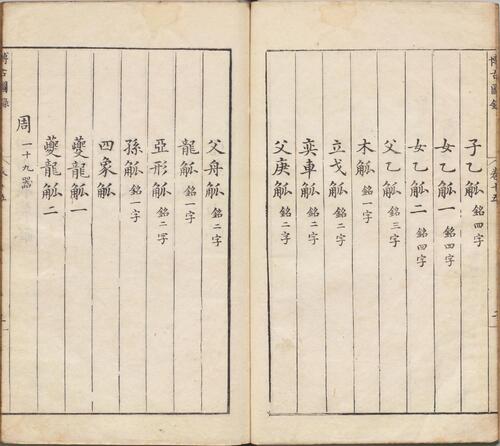 博古圖錄 卷十五 二
子乙觚 銘四字
女乙觚一 銘四字
女乙觚二 銘四字
父乙觚 銘三字
木觚 銘一字
立戈觚 銘二字
奕車觚 銘二字
父庚觚 銘二字
父舟觚 銘二字
龍觚 銘一字
亞形觚 銘二字
孫觚 銘一字
四象觚
夔龍觚一
夔龍觚二
周 一十九器
博古圖錄